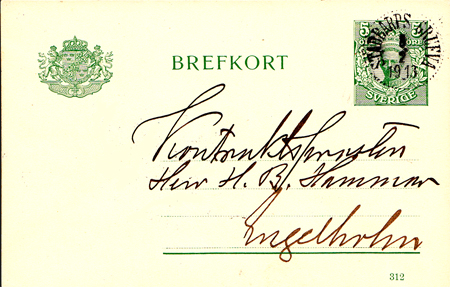 BREFKORT
5 5
ÖRE
1913
SVERIGE
Kontraktsprosten
Herr H. B. Hammar
Engelholm
312